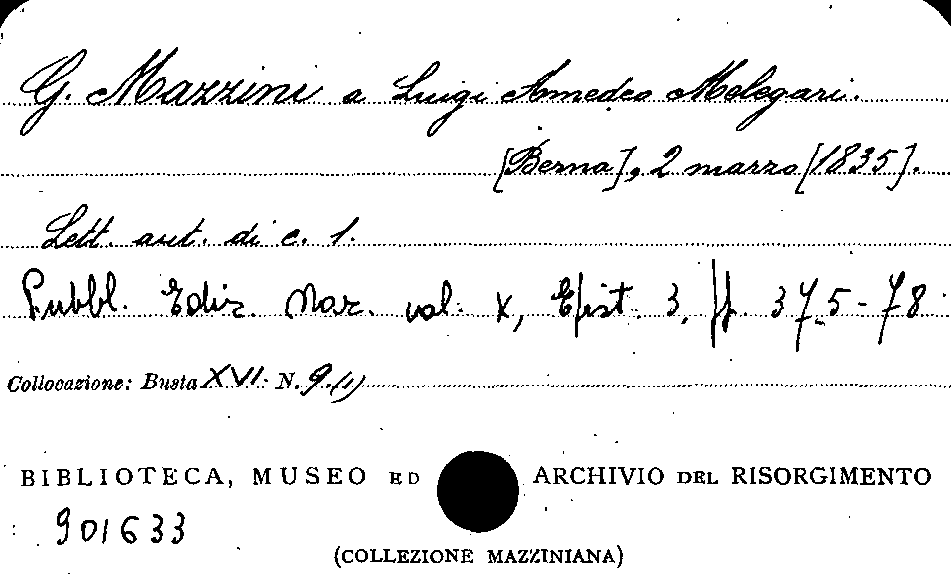 G. Mazzini a Luigi Amedeo Melegari.
[Berna], 2 marzo [1835].
Lett. aut. di c. 1.
Pubbl. Ediz. Naz. vol. X, Epist. 3, pp. 375-78.
Collocazione: Busta XVI. N. 9.(1)
BIBLIOTECA, MUSEO ED ARCHIVIO DEL RISORGIMENTO
901633
(COLLEZIONE MAZZINIANA)